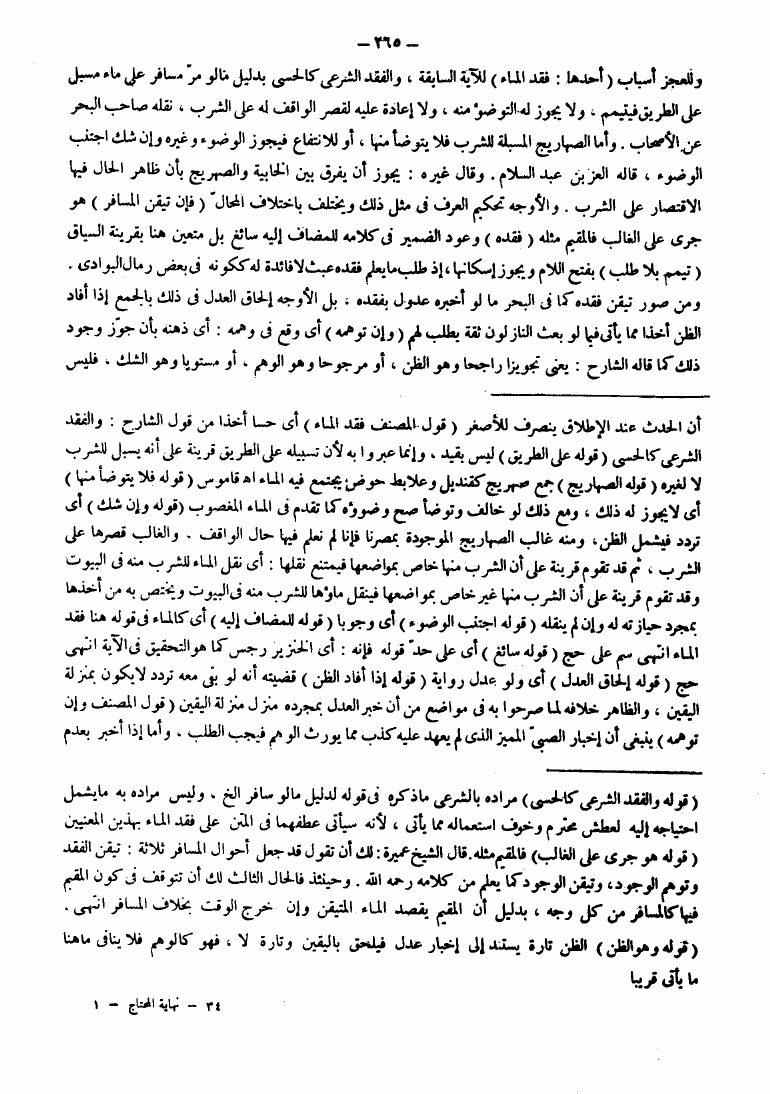 – ٢٦٥ –
وللعجز أسباب ( أحدها : فقد الماء ) للآية السابقة ، والفقد الشرعى كالحسى بدليل مالو مرّ مسافر على ماء مسبل
على الطريق فيتيمم ، ولا يجوز له التوضؤ منه ، ولا إعادة عليه لقصر الواقف له على الشرب ، نقله صاحب البحر
عن الأصحاب . وأما الصهاريج المسبلة للشرب فلا يتوضأ منها ، أو للانتفاع فيجوز الوضوء وغيره وإن شك اجتنب
الوضوء ، قاله العز بن عبد السلام . وقال غيره : يجوز أن يفرق بين الخابية والصهريج بأن ظاهر الحال فيها
الاقتصار على الشرب . والأوجه تحكيم العرف فى مثل ذلك ويختلف باختلاف المحالّ ( فإن تيقن المسافر ) هو
جرى على الغالب فالمقيم مثله ( فقده ) وعود الضمير فى كلامه للمضاف إليه سائغ بل متعين هنا بقرينة السياق
( تيمم بلا طلب ) بفتح اللام ويجوز إسكانها ، إذ طلب مايعلم فقده عبث لافائدة له ككونه فى بعض رمال البوادى .
ومن صور تيقن فقده كما فى البحر ما لو أخبره عدول بفقده ، بل الأوجه إلحاق العدل فى ذلك بالجمع إذا أفاد
الظن أخذا مما يأتى فيما لو بعث النازلون ثقة يطلب لهم ( وإن توهمه ) أى وقع فى وهمه : أى ذهنه بأن جوّز وجود
ذلك كما قاله الشارح : يعنى تجويزا راجحا وهو الظن ، أو مرجوحا وهو الوهم ، أو مستويا وهو الشك . فليس
أن الحدث عند الإطلاق ينصرف للأصغر ( قول المصنف فقد الماء ) أى حسا أخذا من قول الشارح : والفقد
الشرعى كالحسى ( قوله على الطريق ) ليس بقيد ، وإنما عبروا به لأن تسبيله على الطريق قرينة على أنه يسبل للشرب
لا لغيره ( قوله الصهاريج ) جمع صهريج كقنديل وعلابط حوض يجتمع فيه الماء اه قاموس ( قوله فلا يتوضأ منها )
أى لايجوز له ذلك ، ومع ذلك لو خالف وتوضأ صح وضوؤه كما تقدم فى الماء المغصوب ( قوله وإن شك ) أى
تردد فيشمل الظن ، ومنه غالب الصهاريج الموجودة بمصرنا فإنا لم نعلم فيها حال الواقف . والغالب قصرها على
الشرب ، ثم قد تقوم قرينة على أن الشرب منها خاص بمواضعها فيمتنع نقلها : أى نقل الماء للشرب منه فى البيوت
وقد تقوم قرينة على أن الشرب منها غير خاص بمواضعها فينقل ماؤها للشرب منه فى البيوت ويختص به من أخذها
بمجرد حيازته له وإن لم ينقله ( قوله اجتنب الوضوء ) أى وجوبا ( قوله للمضاف إليه ) أى كالماء فى قوله هنا فقد
الماء انتهى سم على حج ( قوله سائغ ) أى على حدّ قوله فإنه : أى الخنزير رجس كما هو التحقيق فى الآية انتهى
حج ( قوله إلحاق العدل ) أى ولو عدل رواية ( قوله إذا أفاد الظن ) قضيته أنه لو بقى معه تردد لايكون بمنزلة
اليقين ، والظاهر خلافه لما صرحوا به فى مواضع من أن خبر العدل بمجرده منزل منزلة اليقين ( قول المصنف وإن
توهمه ) ينبغى أن إخبار الصبىّ المميز الذى لم يعهد عليه كذب مما يورث الوهم فيجب الطلب . وأما إذا أخبر بعدم
( قوله والفقد الشرعى كالحسى ) مراده بالشرعى ماذكره فى قوله لدليل مالو سافر الخ ، وليس مراده به مايشمل
احتياجه إليه لعطش محترم وخوف استعماله مما يأتى ، لأنه سيأتى عطفهما فى المتن على فقد الماء بهذين المعنيين
( قوله هو جرى على الغالب ) فالمقيم مثله . قال الشيخ عميرة : لك أن تقول قد جعل أحوال المسافر ثلاثة : تيقن الفقد
وتوهم الوجود ، وتيقن الوجود كما يعلم من كلامه رحمه الله . وحينئذ فالحال الثالث لك أن تتوقف فى كون المقيم
فيها كالمسافر من كل وجه ، بدليل أن المقيم يقصد الماء المتيقن وإن خرج الوقت بخلاف المسافر انتهى .
( قوله وهو الظن ) الظن تارة يستند إلى إخبار عدل فيلحق باليقين وتارة لا ، فهو كالوهم فلا ينافى ماهنا
ما يأتى قريبا
٣٤ – نهاية المحتاج – ١